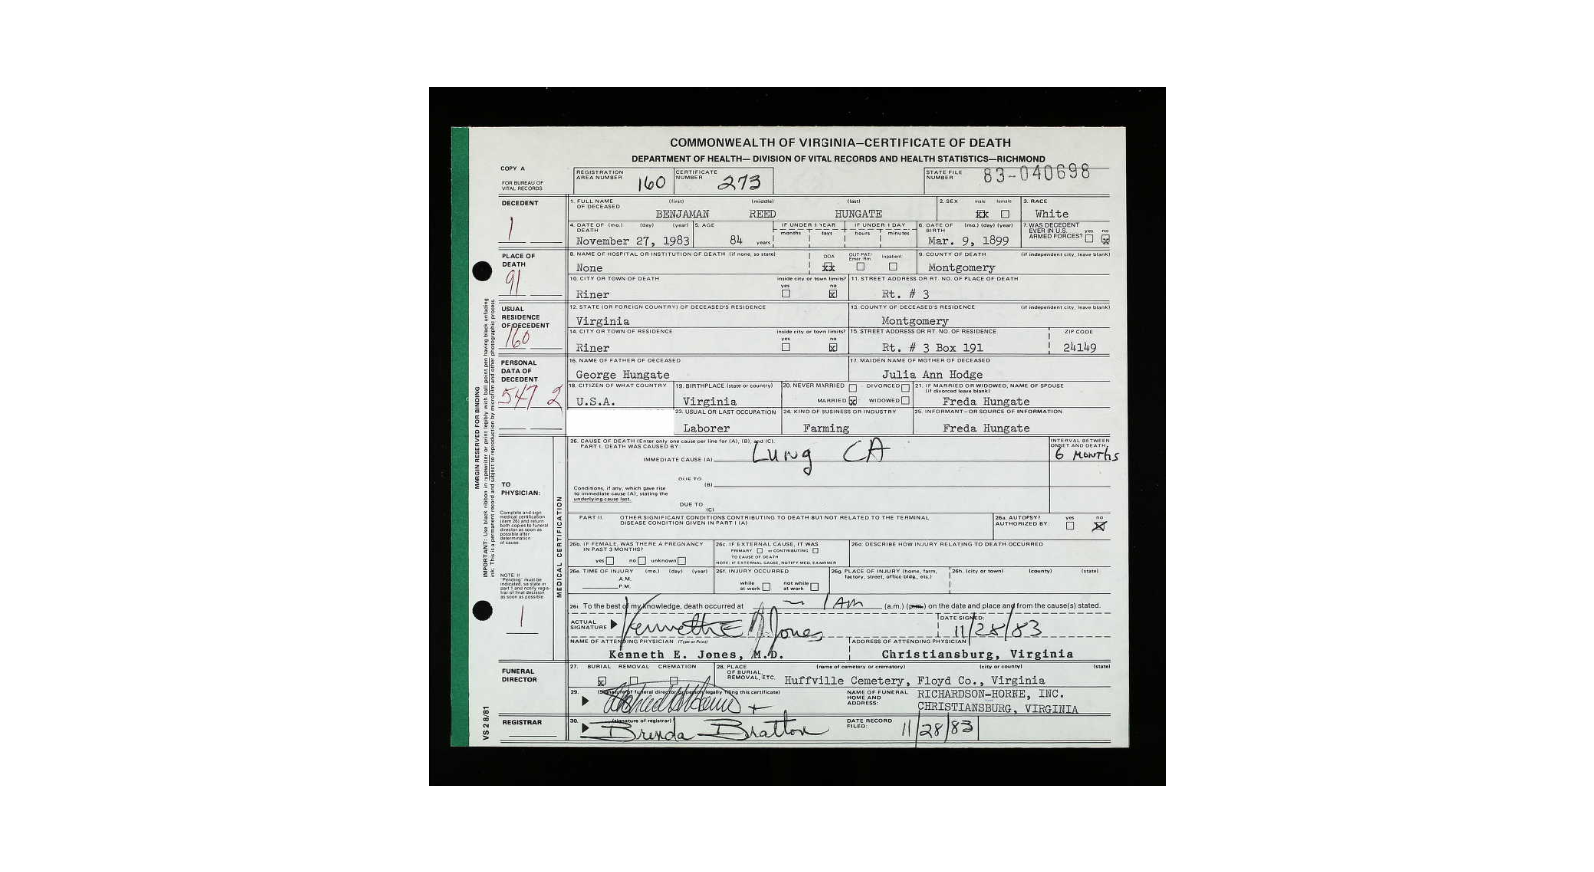 COMMONWEALTH OF VIRGINIA—CERTIFICATE OF DEATH
DEPARTMENT OF HEALTH— DIVISION OF VITAL RECORDS AND HEALTH STATISTICS—RICHMOND
COPY A
FOR BUREAU OF VITAL RECORDS
REGISTRATION AREA NUMBER 160 CERTIFICATE NUMBER 273 STATE FILE NUMBER 83-040698
DECEDENT
1
1. FULL NAME OF DECEASED (first) (middle) (last) 2. SEX male female 3. RACE
BENJAMAN REED HUNGATE White
4. DATE OF DEATH (mo.) (day) (year) 5. AGE IF UNDER 1 YEAR IF UNDER 1 DAY 6. DATE OF BIRTH (mo.) (day) (year) 7. WAS DECEDENT EVER IN U.S. ARMED FORCES? yes no
months days hours minutes
November 27, 1983 84 years Mar. 9, 1899
PLACE OF DEATH
91
8. NAME OF HOSPITAL OR INSTITUTION OF DEATH (if none, so state) DOA OUT PAT/ Emer. Rm Inpatient 9. COUNTY OF DEATH (if independent city, leave blank)
None Montgomery
10. CITY OR TOWN OF DEATH inside city or town limits? yes no 11. STREET ADDRESS OR RT. NO. OF PLACE OF DEATH
Riner Rt. # 3
USUAL RESIDENCE OF DECEDENT
160
12. STATE (OR FOREIGN COUNTRY) OF DECEASED'S RESIDENCE 13. COUNTY OF DECEASED'S RESIDENCE (if independent city, leave blank)
Virginia Montgomery
14. CITY OR TOWN OF RESIDENCE inside city or town limits? yes no 15. STREET ADDRESS OR RT. NO. OF RESIDENCE ZIP CODE
Riner Rt. # 3 Box 191 24149
PERSONAL DATA OF DECEDENT
547 2
16. NAME OF FATHER OF DECEASED 17. MAIDEN NAME OF MOTHER OF DECEASED
George Hungate Julia Ann Hodge
18. CITIZEN OF WHAT COUNTRY 19. BIRTHPLACE (state or country) 20. NEVER MARRIED DIVORCED 21. IF MARRIED OR WIDOWED, NAME OF SPOUSE (if divorced leave blank)
U.S.A. Virginia MARRIED WIDOWED Freda Hungate
23. USUAL OR LAST OCCUPATION 24. KIND OF BUSINESS OR INDUSTRY 25. INFORMANT—OR SOURCE OF INFORMATION
Laborer Farming Freda Hungate
MARGIN RESERVED FOR BINDING
MEDICAL CERTIFICATION
26. CAUSE OF DEATH (Enter only one cause per line for (A), (B), and (C). INTERVAL BETWEEN ONSET AND DEATH
PART I. DEATH WAS CAUSED BY:
IMMEDIATE CAUSE (A) Lung CA 6 Months
DUE TO
(B)
Conditions, if any, which gave rise to immediate cause (A), stating the underlying cause last.
DUE TO
(C)
TO PHYSICIAN:
Complete and sign medical certification (item 26) and return both copies to funeral director as soon as possible after determination of cause.
PART II. OTHER SIGNIFICANT CONDITIONS CONTRIBUTING TO DEATH BUT NOT RELATED TO THE TERMINAL DISEASE CONDITION GIVEN IN PART I (A) 26a. AUTOPSY? AUTHORIZED BY: yes no
26b. IF FEMALE, WAS THERE A PREGNANCY IN PAST 3 MONTHS? 26c. IF EXTERNAL CAUSE, IT WAS 26d. DESCRIBE HOW INJURY RELATING TO DEATH OCCURRED
PRIMARY or CONTRIBUTING
TO CAUSE OF DEATH
yes no unknown NOTE: IF EXTERNAL CAUSE, NOTIFY MED. EXAMINER
26e. TIME OF INJURY (mo.) (day) (year) 26f. INJURY OCCURRED 26g. PLACE OF INJURY (home, farm, factory, street, office bldg., etc.) 26h. (city or town) (county) (state)
A.M.
P.M. while at work not while at work
1
26i. To the best of my knowledge, death occurred at 1 Am (a.m.) (p.m.) on the date and place and from the cause(s) stated.
ACTUAL SIGNATURE Kenneth E Jones DATE SIGNED: 11/28/83
NAME OF ATTENDING PHYSICIAN (Type or Print) ADDRESS OF ATTENDING PHYSICIAN
Kenneth E. Jones, M.D. Christiansburg, Virginia
FUNERAL DIRECTOR
27. BURIAL REMOVAL CREMATION 28. PLACE OF BURIAL, REMOVAL, ETC. (name of cemetery or crematory) (city or county) (state)
Huffville Cemetery, Floyd Co., Virginia
29. (Signature of funeral director or person legally filing this certificate) NAME OF FUNERAL HOME AND ADDRESS: RICHARDSON-HORNE, INC.
CHRISTIANSBURG, VIRGINIA
REGISTRAR
30. (signature of registrar) Brenda Bratton DATE RECORD FILED: 11/28/83
VS 2 8/81